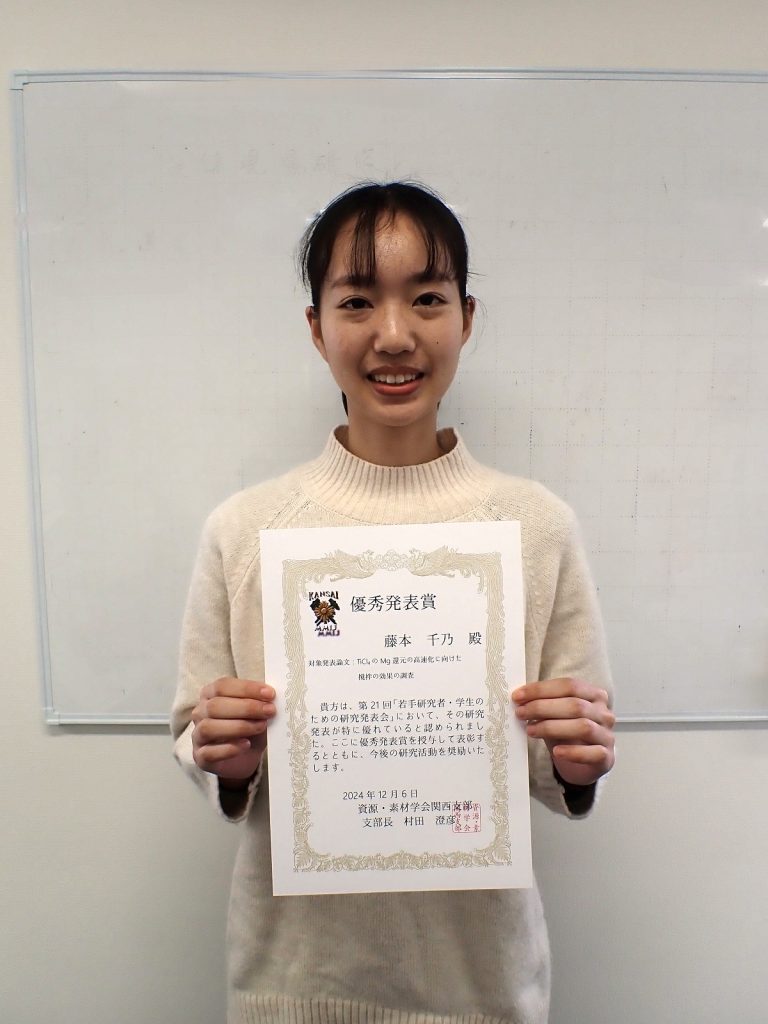 KANSAI
MMIJ
MMIJ
優秀発表賞
藤本 千乃 殿
対象発表論文：TiCl₄のMg還元の高速化に向けた
撹拌の効果の調査
貴方は、第21回「若手研究者・学生の
ための研究発表会」において、その研究
発表が特に優れていると認められまし
た。ここに優秀発表賞を授与して表彰す
るとともに、今後の研究活動を奨励いた
します。
2024年12月6日
資源・素材学会関西支部
支部長 村田 澄彦